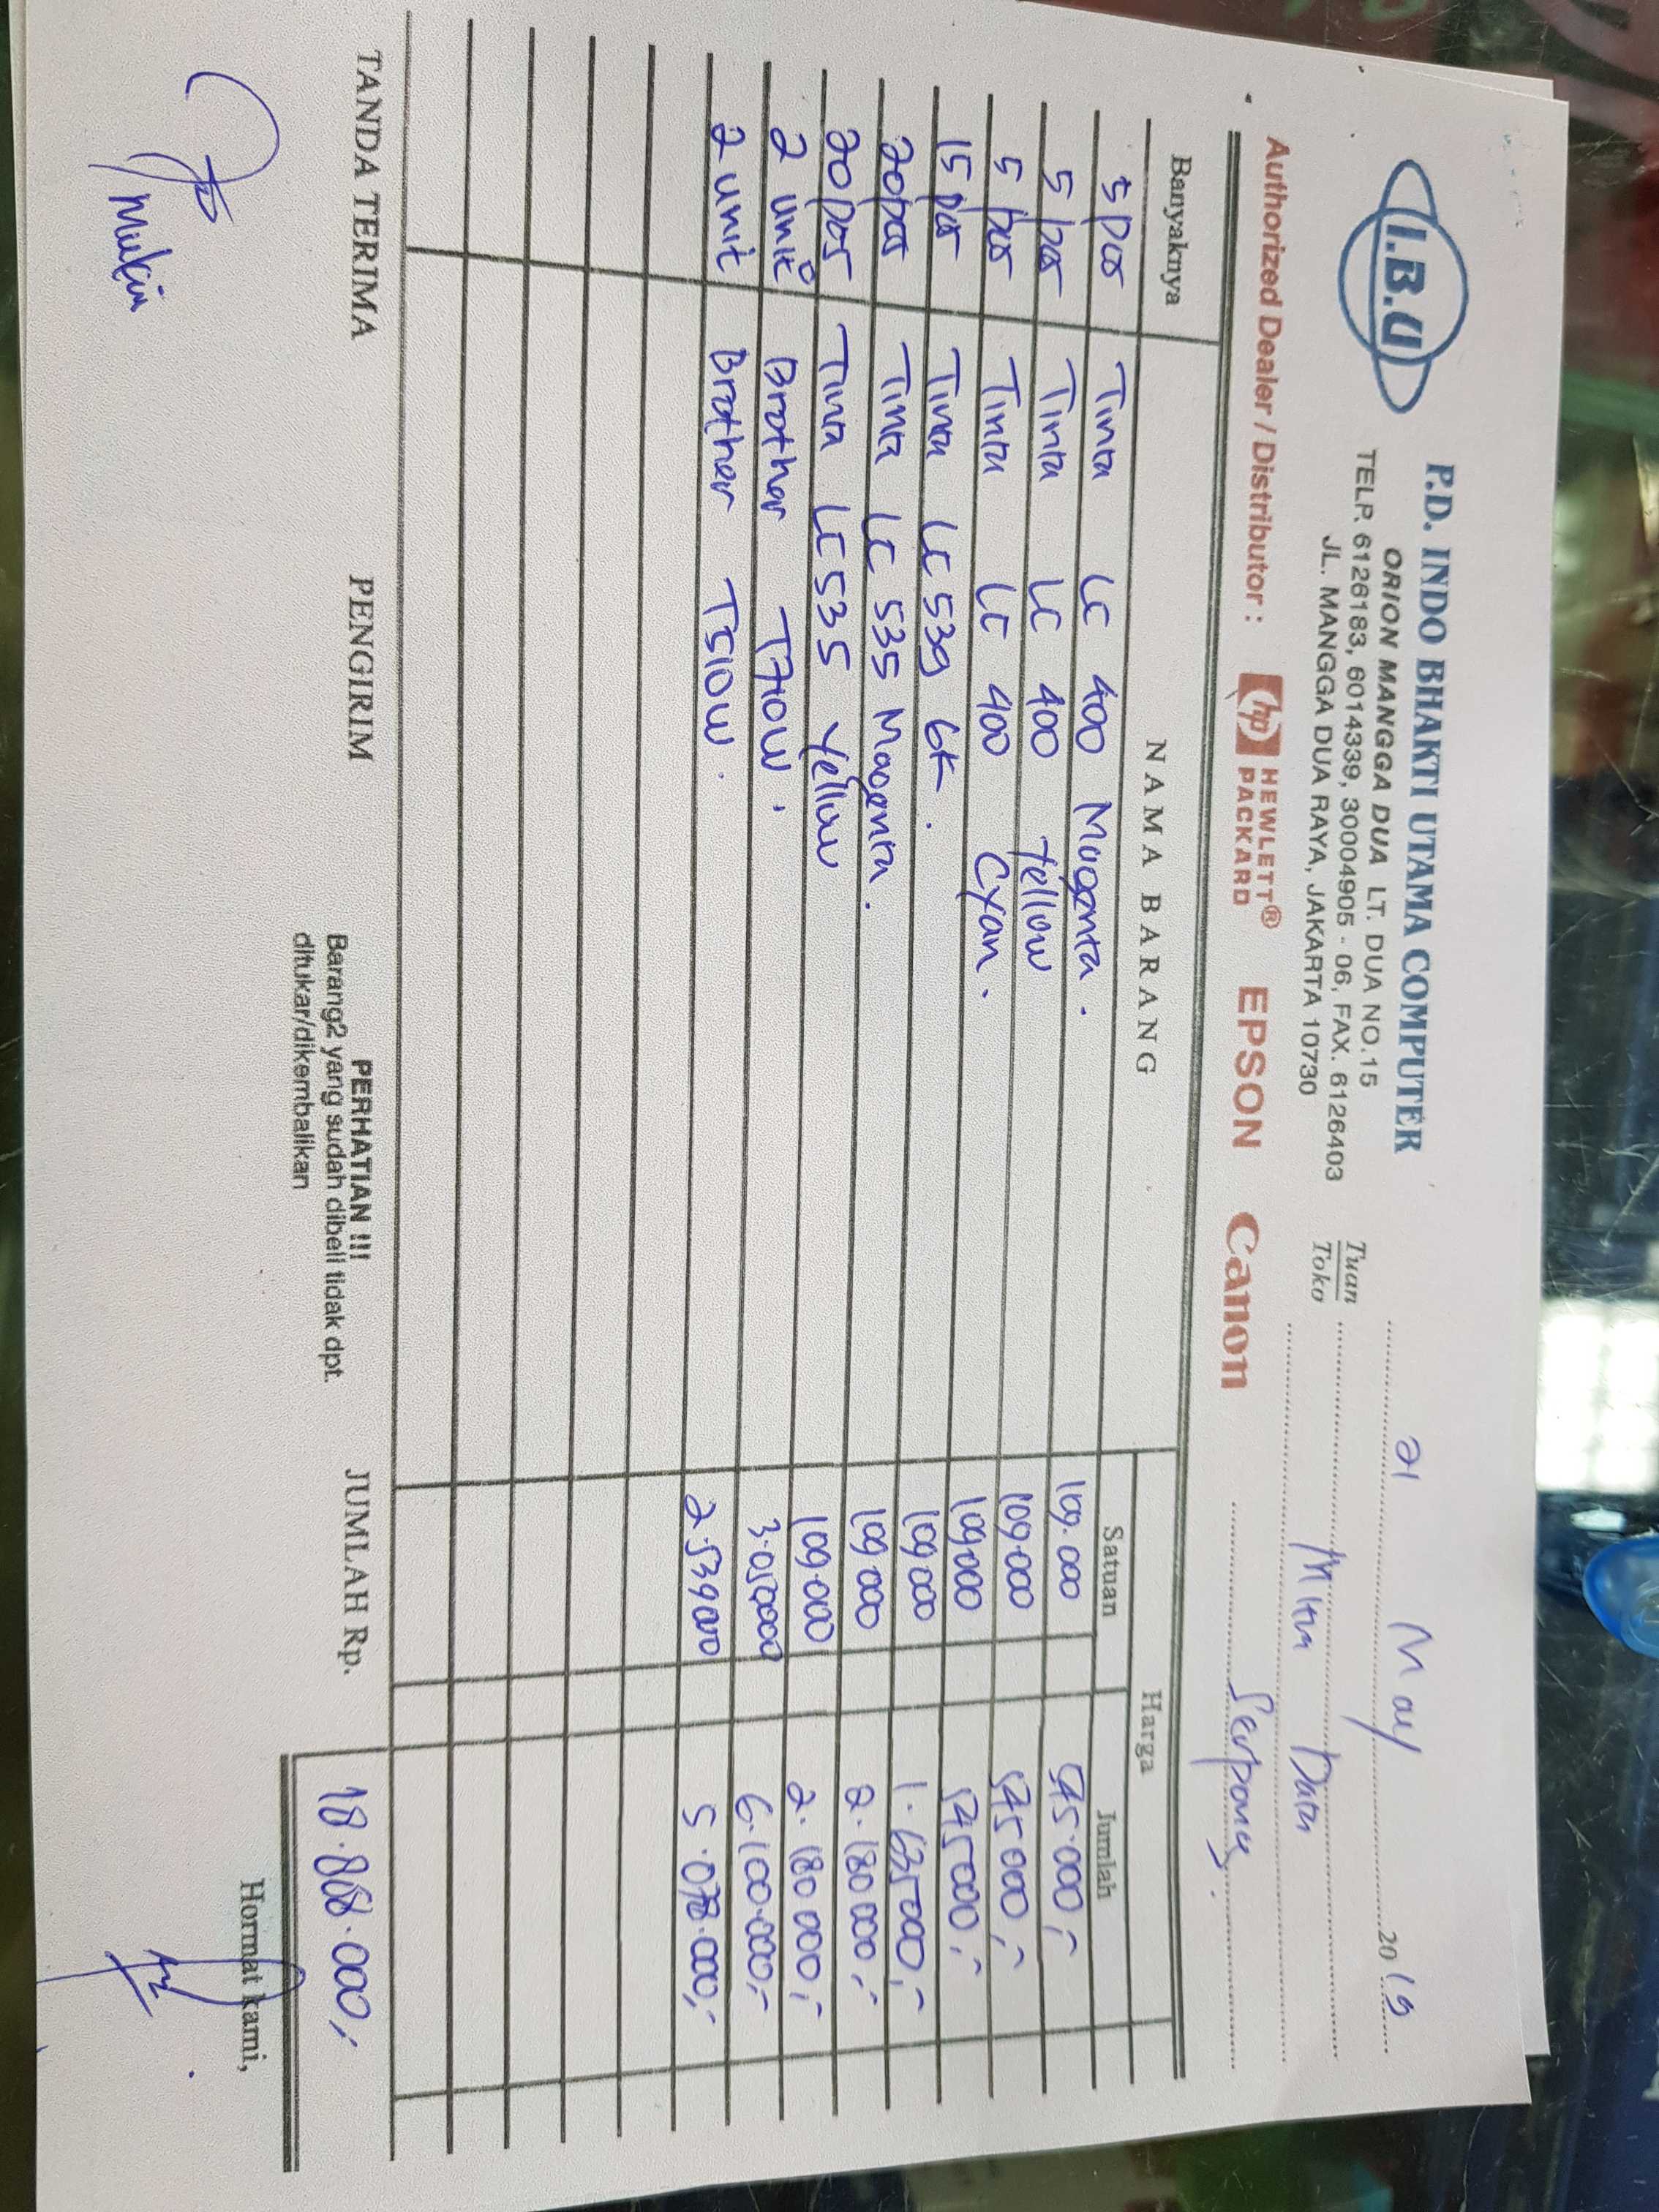 I.B.U
P.D. INDO BHAKTI UTAMA COMPUTER
ORION MANGGA DUA LT. DUA NO.15
TELP. 6126183, 6014339, 30004905 - 06, FAX. 6126403
JL. MANGGA DUA RAYA, JAKARTA 10730
21 May 2019
Tuan
Toko
Mitra Data
Serpong.
Authorized Dealer / Distributor : hp HEWLETT® PACKARD EPSON Canon
Banyaknya NAMA BARANG Harga
Satuan Jumlah
5 pcs Tinta LC 400 Magenta. 109.000 545.000,-
5 pcs Tinta LC 400 Yellow 109.000 545000,-
5 pcs Tinta LC 400 Cyan. 109.000 545000,-
15 pcs Tinta LC 539 BK. 109000 1.635000,-
20 pcs Tinta LC 535 Magenta. 109.000 2.180000,-
20 pcs Tinta LC 535 Yellow 109.000 2.180000,-
2 unit Brother T710W. 3.050000 6.100.000,-
2 unit Brother T510W. 2.539000 5.078.000,-
TANDA TERIMA PENGIRIM JUMLAH Rp. 18.808.000,-
PERHATIAN !!!
Barang2 yang sudah dibeli tidak dpt.
ditukar/dikembalikan
Hormat kami,